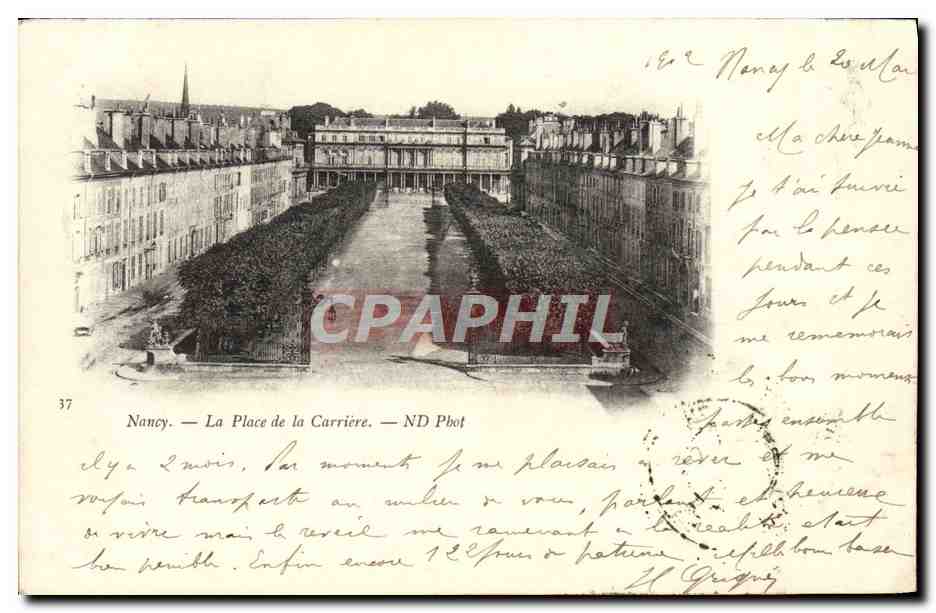 1902 Nancy le 20 Mai
Ma chère Jeanne
je t'ai suivie
par la pensée
pendant ces
jours et je
me rememorais
les bons moments
passés ensemble
CPAPHIL
37
Nancy. — La Place de la Carrière. — ND Phot
il y a 2 mois. Par moments je me plaisais a rever et me
voyais transporté au milieu de vous, parlant et heureux
de vivre mais le reveil me ramenant a la realité etait
bien penible. Enfin encore 122 jours de patience
bon baiser